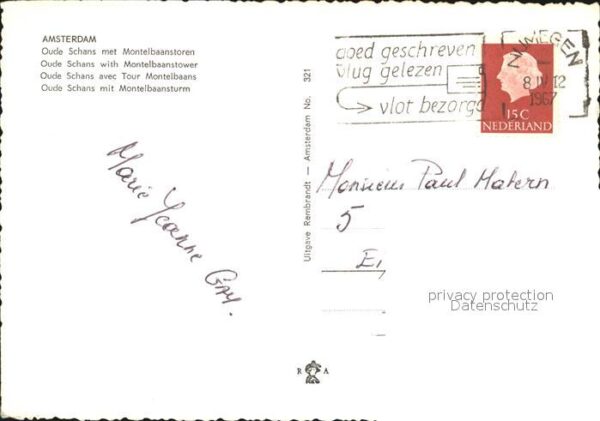 AMSTERDAM
Oude Schans met Montelbaanstoren
Oude Schans with Montelbaanstower
Oude Schans avec Tour Montelbaans
Oude Schans mit Montelbaansturm
Marie Jeanne Gay.
Uitgave Rembrandt — Amsterdam No. 321
goed geschreven
vlug gelezen
vlot bezorgd
NIJMEGEN
8 IV 12
1967
15 C
NEDERLAND
Monsieur Paul Matern
5
E
privacy protection
Datenschutz
R A